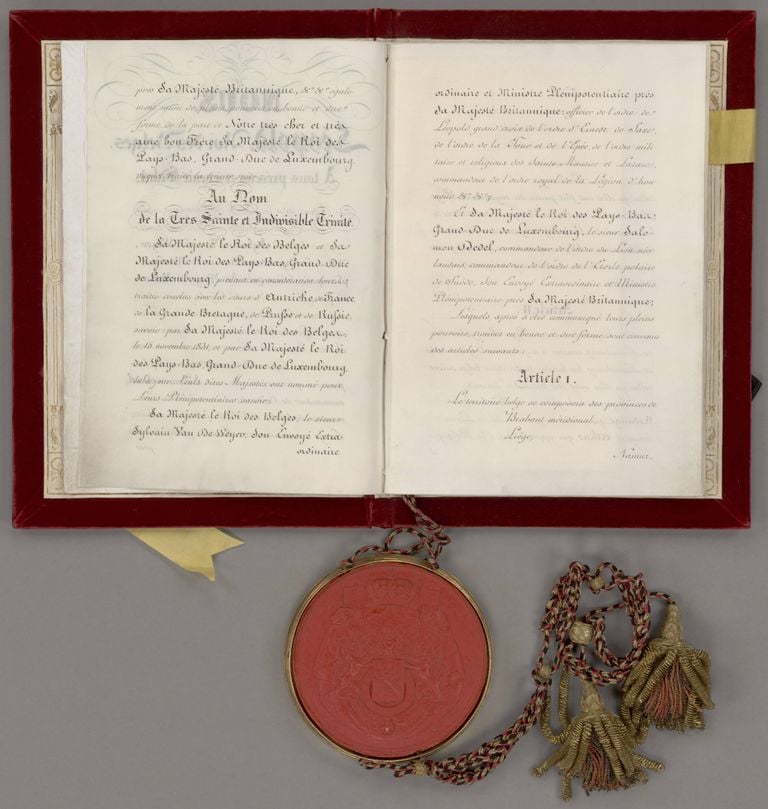 près Sa Majesté Britannique, &ª &ª égale-
ment muni de pleins pouvoirs en bonne et due
forme de la part de Nôtre très cher et très
aimé bon Frère Sa Majesté le Roi des
Pays-Bas, Grand-Duc de Luxembourg,
signé, traité la teneur suit:
Au Nom
de la Très Sainte et Indivisible Trinité.
Sa Majesté le Roi des Belges et Sa
Majesté le Roi des Pays-Bas, Grand-Duc
de Luxembourg, prenant en considération leurs
traités conclus avec les cours d'Autriche, de France,
de la Grande Bretagne, de Prusse et de Russie,
savoir: par Sa Majesté le Roi des Belges,
le 15 novembre 1831, et par Sa Majesté le Roi
des Pays-Bas, Grand-Duc de Luxembourg,
jour, Leurs dites Majestés ont nommé pour
Leurs Plénipotentiaires, savoir:
Sa Majesté le Roi des Belges, le sieur
Sylvain Van De Weyer, Son Envoyé Extra-
ordinaire
ordinaire et Ministre Plénipotentiaire près
Sa Majesté Britannique, officier de l'ordre de
Léopold, grand'croix de l'ordre d'Ernest de Saxe,
de l'ordre de la Tour et de l'Épée, de l'ordre mili-
taire et religieux des Saints Maurice et Lazare,
commandeur de l'ordre royal de la Légion d'hon-
neur &ª &ª;
Et Sa Majesté le Roi des Pays-Bas,
Grand-Duc de Luxembourg, le sieur Salo-
mon Dedel, commandeur de l'ordre du Lion néer-
landais, commandeur de l'ordre de l'Étoile polaire
de Suède, Son Envoyé Extraordinaire et Ministre
Plénipotentiaire près Sa Majesté Britannique;
Lesquels, après s'être communiqué leurs pleins
pouvoirs, trouvés en bonne et due forme, sont convenus
des articles suivants:
Article 1.
Le territoire belge se composera des provinces de
Brabant méridional;
Liége;
Namur;